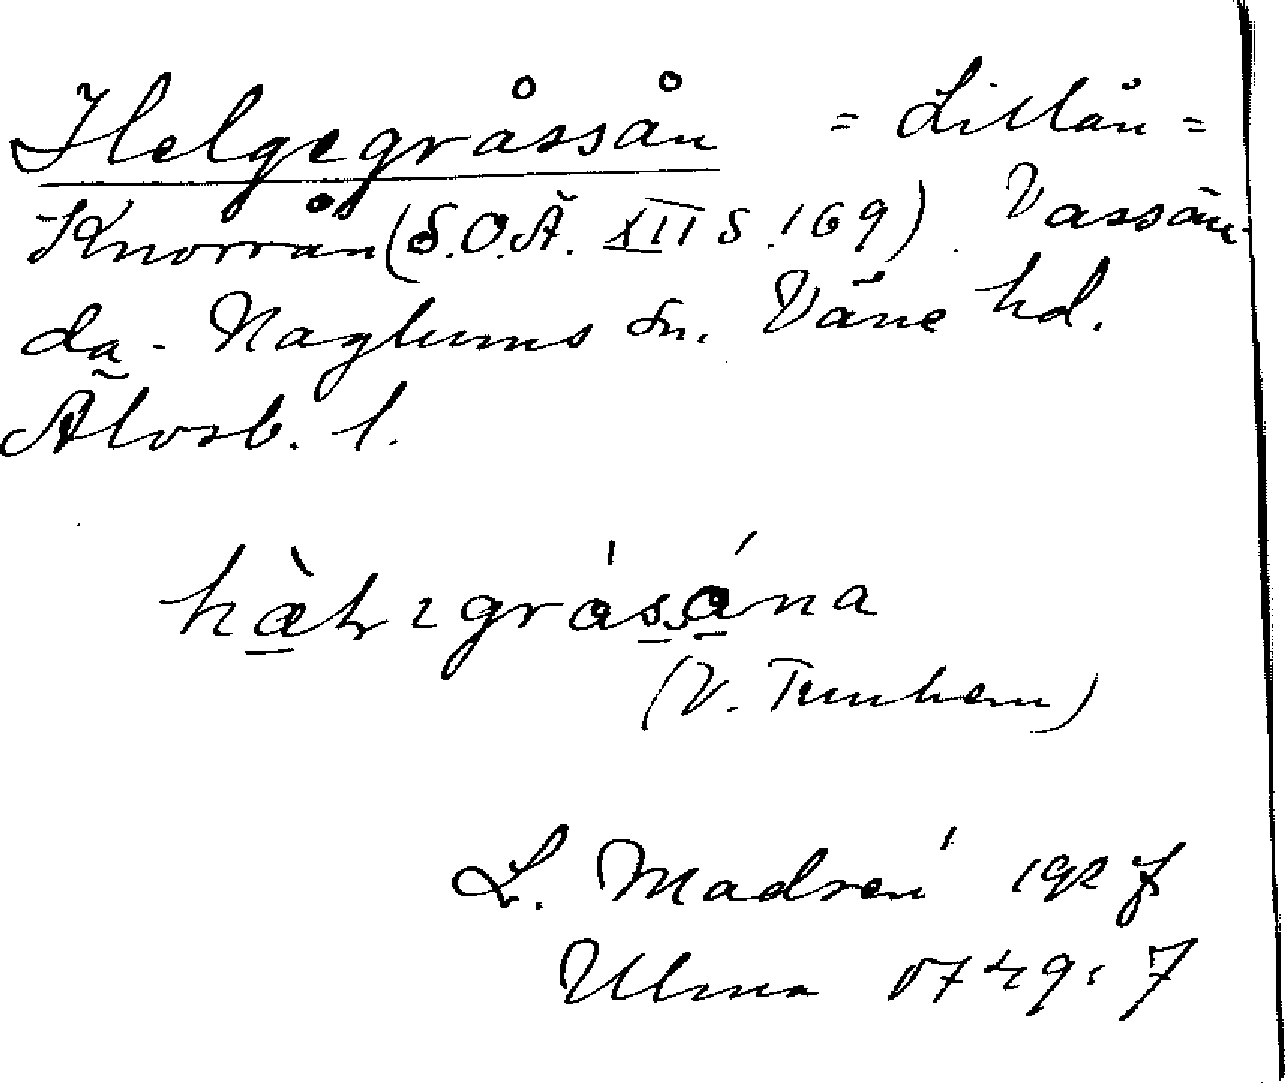 Helgegråssån = Lillån =
Knorrån (S.O.Ä. XII s. 169). Vassän-
da-Naglums sn. Väne hd.
Älvsb. l.
(V. Tunhem)
L. Madsén 1927
Ulma